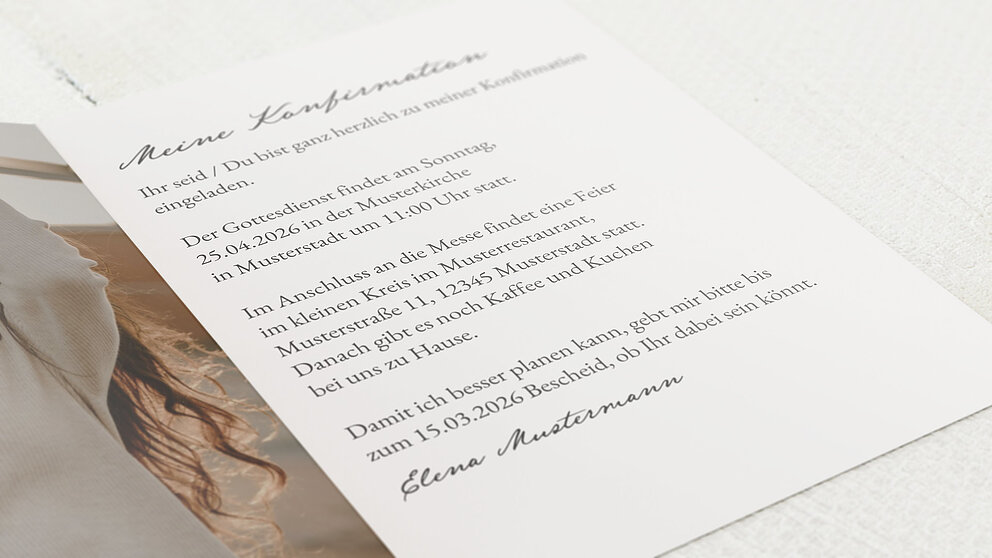 Meine Konfirmation
Ihr seid / Du bist ganz herzlich zu meiner Konfirmation
eingeladen.
Der Gottesdienst findet am Sonntag,
25.04.2026 in der Musterkirche
in Musterstadt um 11:00 Uhr statt.
Im Anschluss an die Messe findet eine Feier
im kleinen Kreis im Musterrestaurant,
Musterstraße 11, 12345 Musterstadt statt.
Danach gibt es noch Kaffee und Kuchen
bei uns zu Hause.
Damit ich besser planen kann, gebt mir bitte bis
zum 15.03.2026 Bescheid, ob Ihr dabei sein könnt.
Elena Mustermann